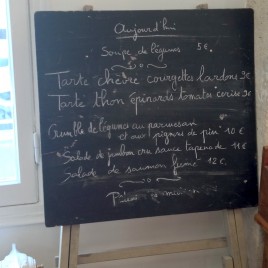 Aujourd'hui
Soupe de légumes 5€
Tarte chèvre courgettes lardons 9€
Tarte thon épinards tomates cerises 9€
Crumble de légumes au parmesan
et aux pignons de pin 10€
Salade de jambon cru sauce tapenade 11€
Salade de saumon fumé 12€